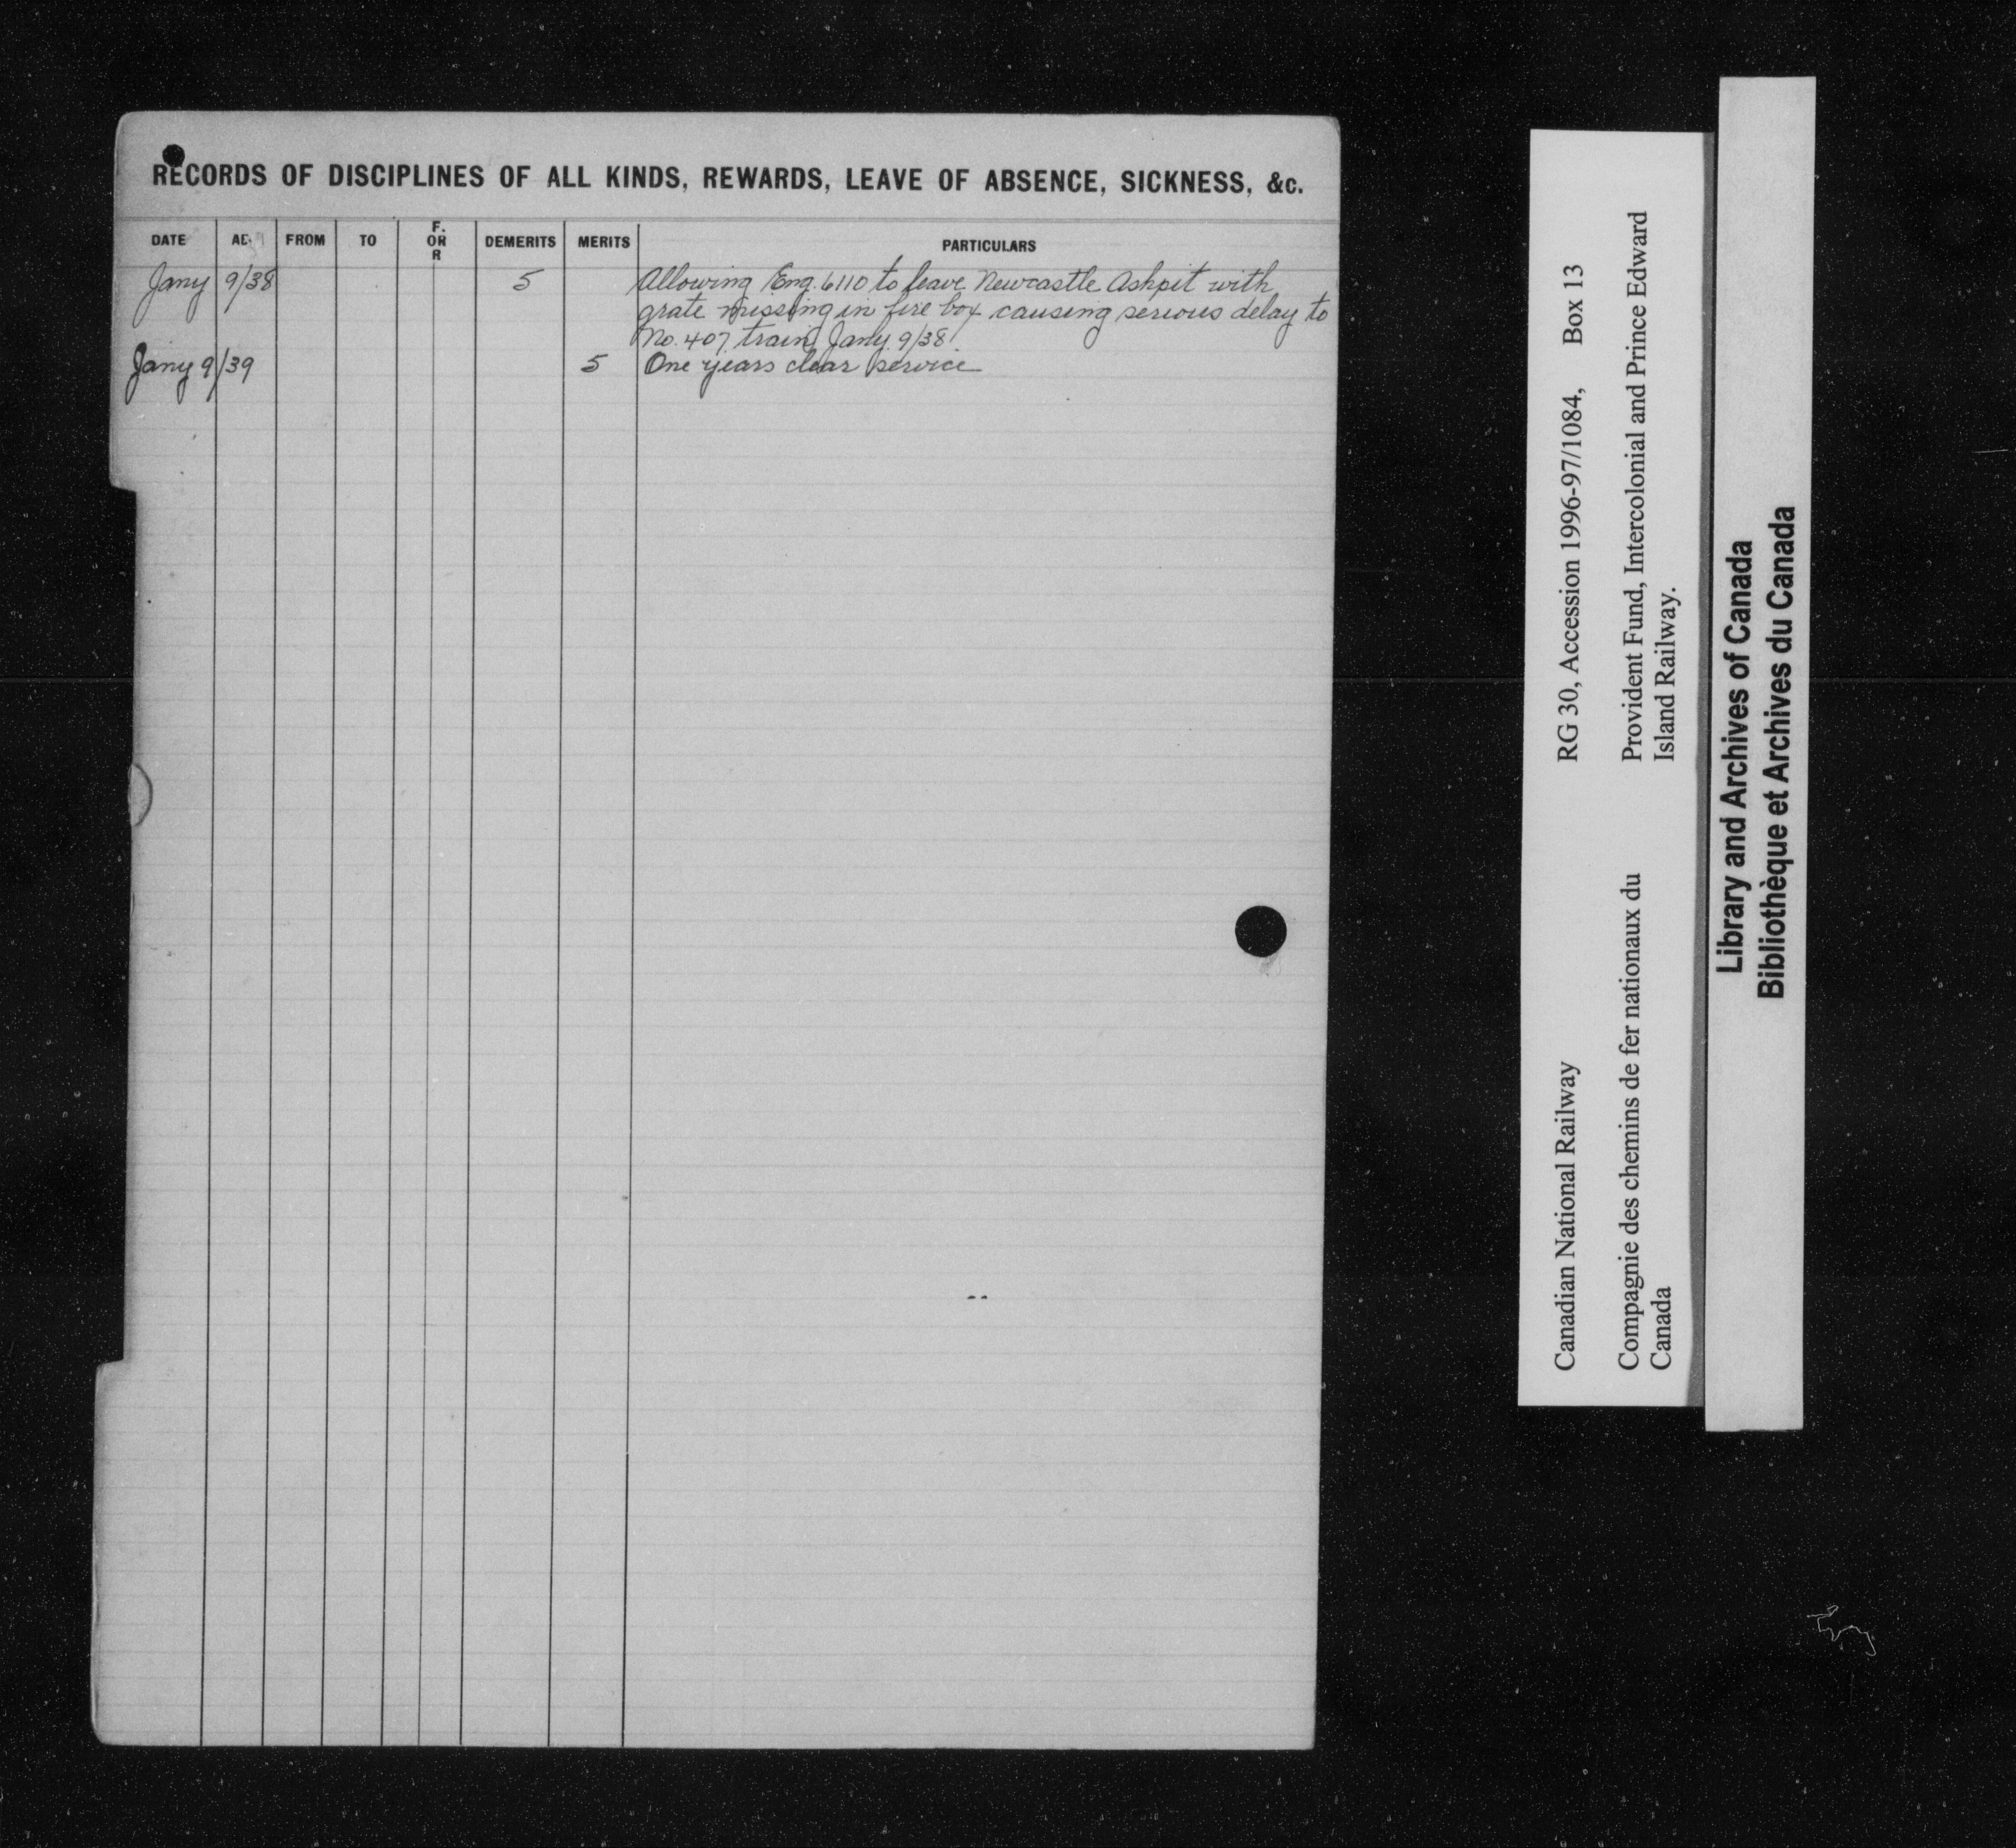 RECORDS OF DISCIPLINES OF ALL KINDS, REWARDS, LEAVE OF ABSENCE, SICKNESS, &c.
DATE FROM TO F. OR R DEMERITS MERITS PARTICULARS
Jany 9/38 5 Allowing Eng. 6110 to leave Newcastle Ashpit with
grate missing in fire box causing serious delay to
No. 407 train Jany. 9/38
Jany 9/39 5 One years clear service
Canadian National Railway RG 30, Accession 1996-97/1084, Box 13
Compagnie des chemins de fer nationaux du Provident Fund, Intercolonial and Prince Edward
Canada Island Railway.
Library and Archives of Canada
Bibliothèque et Archives du Canada